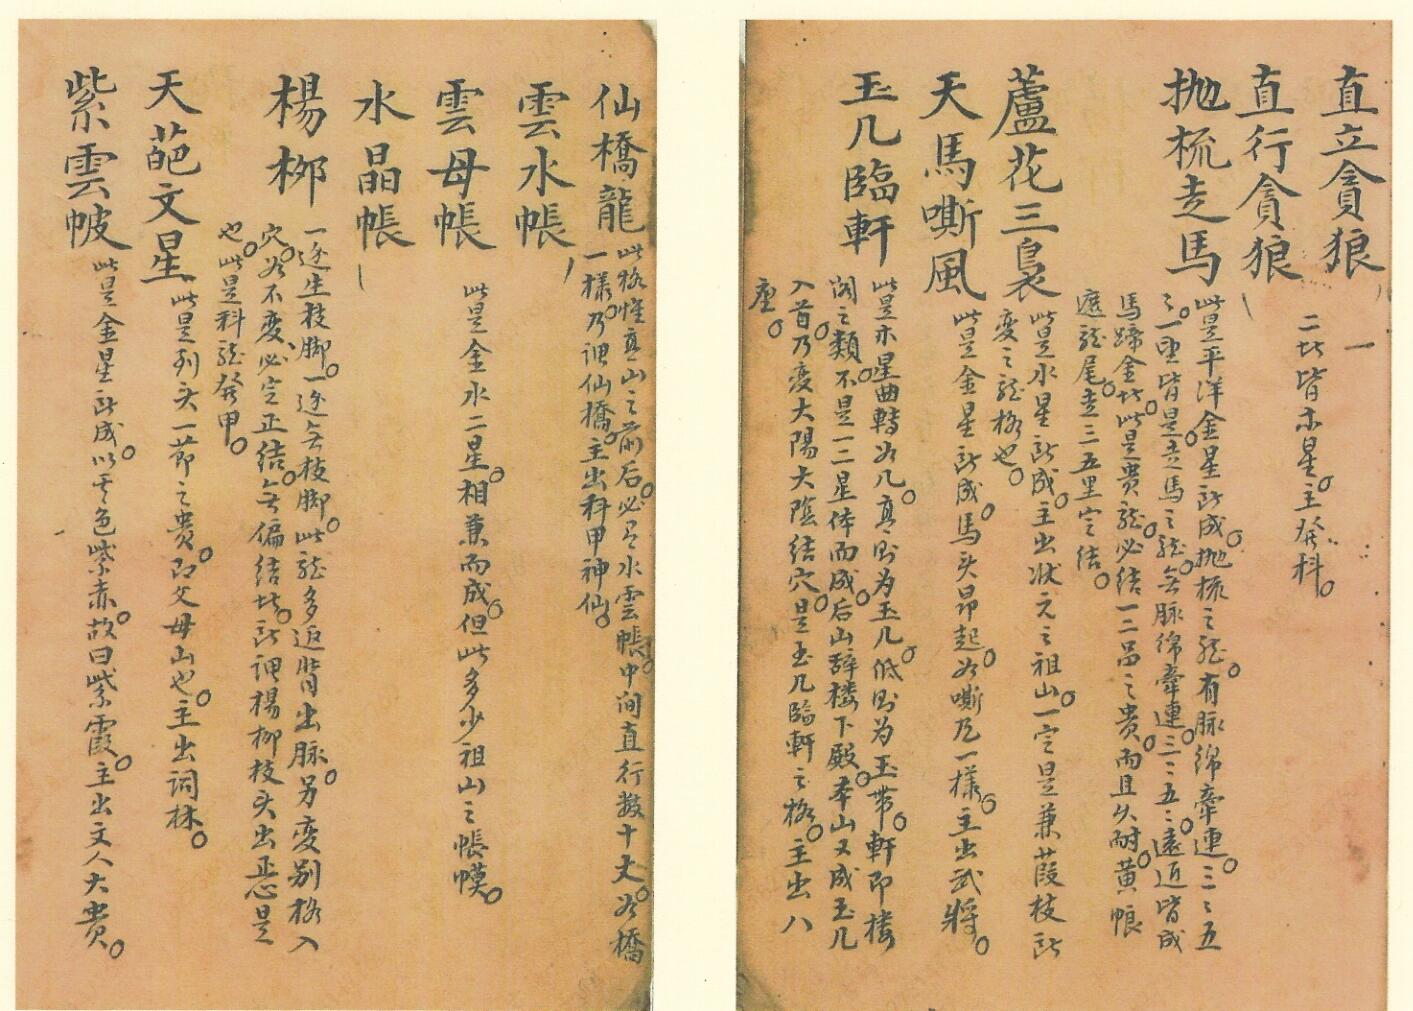 直立貪狼
一
直行貪狼
二者皆木星。主發科。
拋梳走馬
此是平洋金星所成。拋梳之龍。有脉綿牽連。三三五
五。一望皆是走馬之龍。無脉綿牽連。三三五五。遠近皆成
馬蹄金者。此是貴龍。必結一二品之貴。而且久耐。黃帳
遮龍尾。走三五里定結。
蘆花三裊
此是水星所成。主出狀元之祖山。一定是兼葭枝所
變之龍格也。
天馬嘶風
此是金星所成。馬头昂起。如嘶风一樣。主出武將。
玉几臨軒
此是木星曲轉如几。高則为玉几。低則为玉带。軒即楼
閣之類。不是一二星体而成。后山辞楼下殿。本山又成玉几
入首。乃变大陽大陰結穴。是玉几臨軒之格。主出八
座。
仙橋龍
此格惟高山之前后。必有水雲帳。中间直行数十丈。如橋
一樣。乃謂仙橋。主出科甲神仙。
雲水帳
雲母帳
此是金水二星。相兼而成。但此多少祖山之帳幙。
水晶帳
楊柳
一边生枝脚。一边無枝脚。此龍多近背出脉。另变别格入
穴。如不变。必定正結。無偏結者。所謂楊柳枝头出正是
也。此是科龍發甲。
天葩文星
此是列头一節之貴。即父母山也。主出词林。
紫雲帔
此是金星所成。以其色紫赤。故曰紫霞。主出文人大貴。